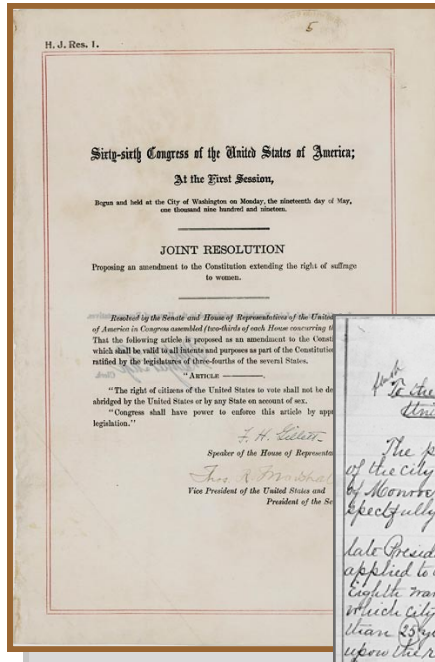 5
H. J. Res. 1.
Sixty-sixth Congress of the United States of America;
At the First Session,
Begun and held at the City of Washington on Monday, the nineteenth day of May,
one thousand nine hundred and nineteen.
JOINT RESOLUTION
Proposing an amendment to the Constitution extending the right of suffrage
to women.
Resolved by the Senate and House of Representatives of the United
of America in Congress assembled (two-thirds of each House concurring
That the following article is proposed as an amendment to the
which shall be valid to all intents and purposes as part of the
ratified by the legislatures of three-fourths of the several States.
"ARTICLE ————.
"The right of citizens of the United States to vote shall not be
abridged by the United States or by any State on account of sex.
"Congress shall have power to enforce this article by
legislation."
F. H. Gillett
Speaker of the House of
Thos. R. Marshall
Vice President of the United States and
President of the
To the
The
of the city
of Monroe
spectfully
late
applied to
Eighth
which city
than 25
upon the